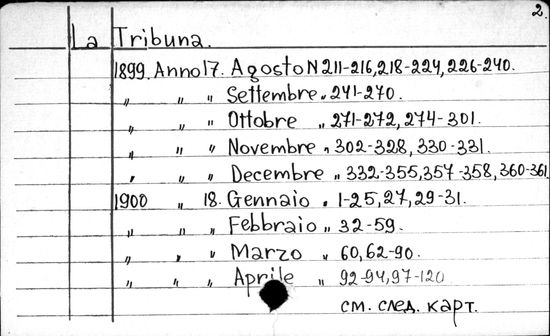 2.
La Tribuna.
1899. Anno 17. Agosto N 211-216, 218-224, 226-240.
" " " Settembre " 241-270.
" " " Ottobre " 271-272, 274-301.
" " " Novembre " 302-328, 330-331.
" " " Decembre " 332-355, 357-358, 360-361
1900 " 18. Gennaio " 1-25, 27, 29-31.
" " " Febbraio " 32-59.
" " " Marzo " 60, 62-90.
" " " Aprile " 92-94, 97-120
см. след. карт.